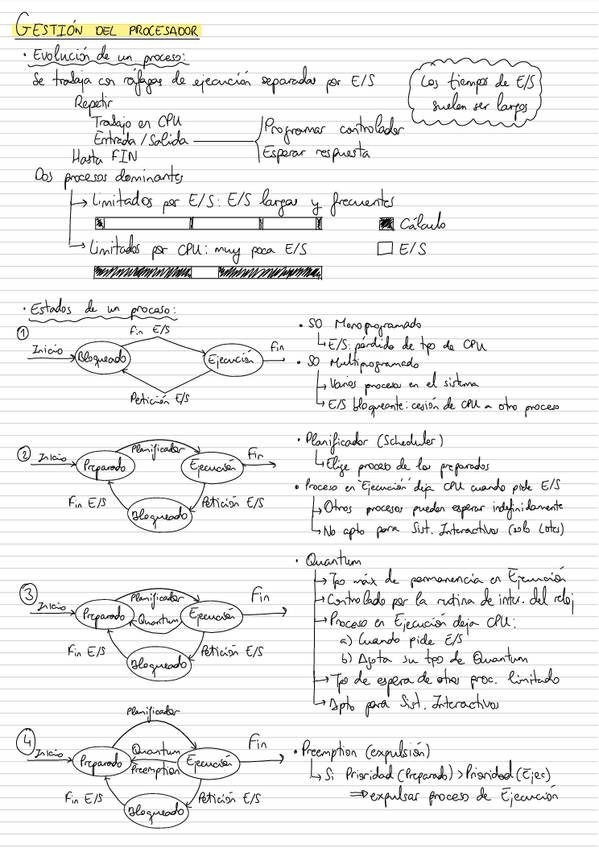 GESTIÓN DEL PROCESADOR
· Evolución de un proceso:
Se trabaja con ráfagas de ejecución separadas por E/S
Los tiempos de E/S
suelen ser largos
Repetir
Trabajo en CPU
Entrada/Salida
Programar controlador
Esperar respuesta
Hasta FIN
Dos procesos dominantes
Limitados por E/S: E/S largas y frecuentes
Cálculo
Limitados por CPU: muy poca E/S
E/S
· Estados de un proceso:
1
Inicio
Bloqueado
Fin E/S
Ejecución
Fin
Petición E/S
· SO Monoprogramado
E/S: pérdida de tpo de CPU
· SO Multiprogramado
Varios procesos en el sistema
E/S bloqueante: cesión de CPU a otro proceso
2
Inicio
Preparado
Planificador
Ejecución
Fin
Fin E/S
Bloqueado
Petición E/S
· Planificador (Scheduler)
Elige proceso de los preparados
· Proceso en "Ejecución" deja CPU cuando pide E/S
Otros procesos pueden esperar indefinidamente
No apto para Sist. Interactivos (solo Lotes)
3
Inicio
Preparado
Planificador
Quantum
Ejecución
Fin
Fin E/S
Bloqueado
Petición E/S
· Quantum
Tpo máx de permanencia en Ejecución
Controlado por la rutina de intr. del reloj
Proceso en Ejecución deja CPU:
a) Cuando pide E/S
b) Agota su tpo de Quantum
Tpo de espera de otros proc. limitado
Apto para Sist. Interactivos
4
Inicio
Planificador
Preparado
Quantum
Preemption
Ejecución
Fin
Fin E/S
Bloqueado
Petición E/S
· Preemption (expulsión)
Si Prioridad (Preparado) > Prioridad (Ejec)
⇒ expulsar proceso de Ejecución